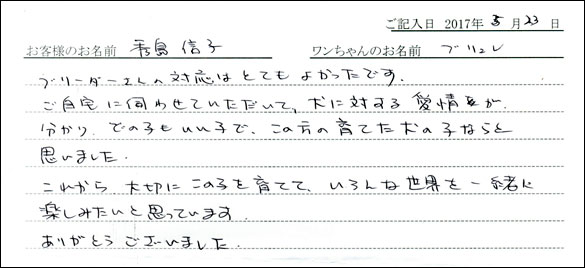 ご記入日 2017年 5月 23日
お客様のお名前 島 信子 ワンちゃんのお名前 ブリュレ
ブリーダーさんの対応はとてもよかったです.
ご自宅に伺わせていただいて、犬に対する愛情が.
分かり. どの子もいい子で、この方の育てた犬の子ならと
思いました.
これから 大切にこの子を育てて、いろんな世界を一緒に
楽しみたいと思っています.
ありがとうございました.